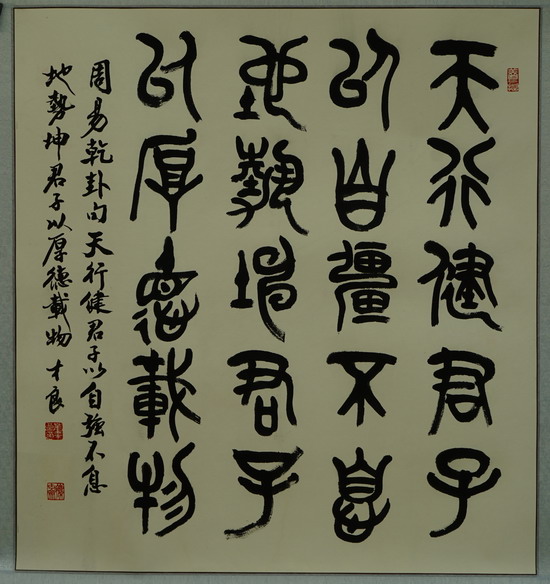 天行健君子
以自彊不息
地勢坤君子
以厚德載物
周易乾卦句天行健君子以自強不息
地勢坤君子以厚德載物 才良